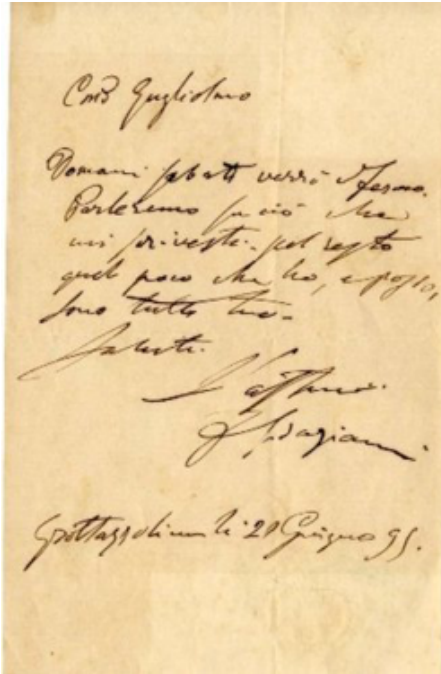 Caro Guglielmo
Domani sabato verrò a Fermo.
Parleremo su ciò che
mi scrivesti. pel resto
quel poco che ho, e posso,
sono tutto tuo.
Saluti.
L'aff.mo
Grottazzolina li 21 Giugno 95.